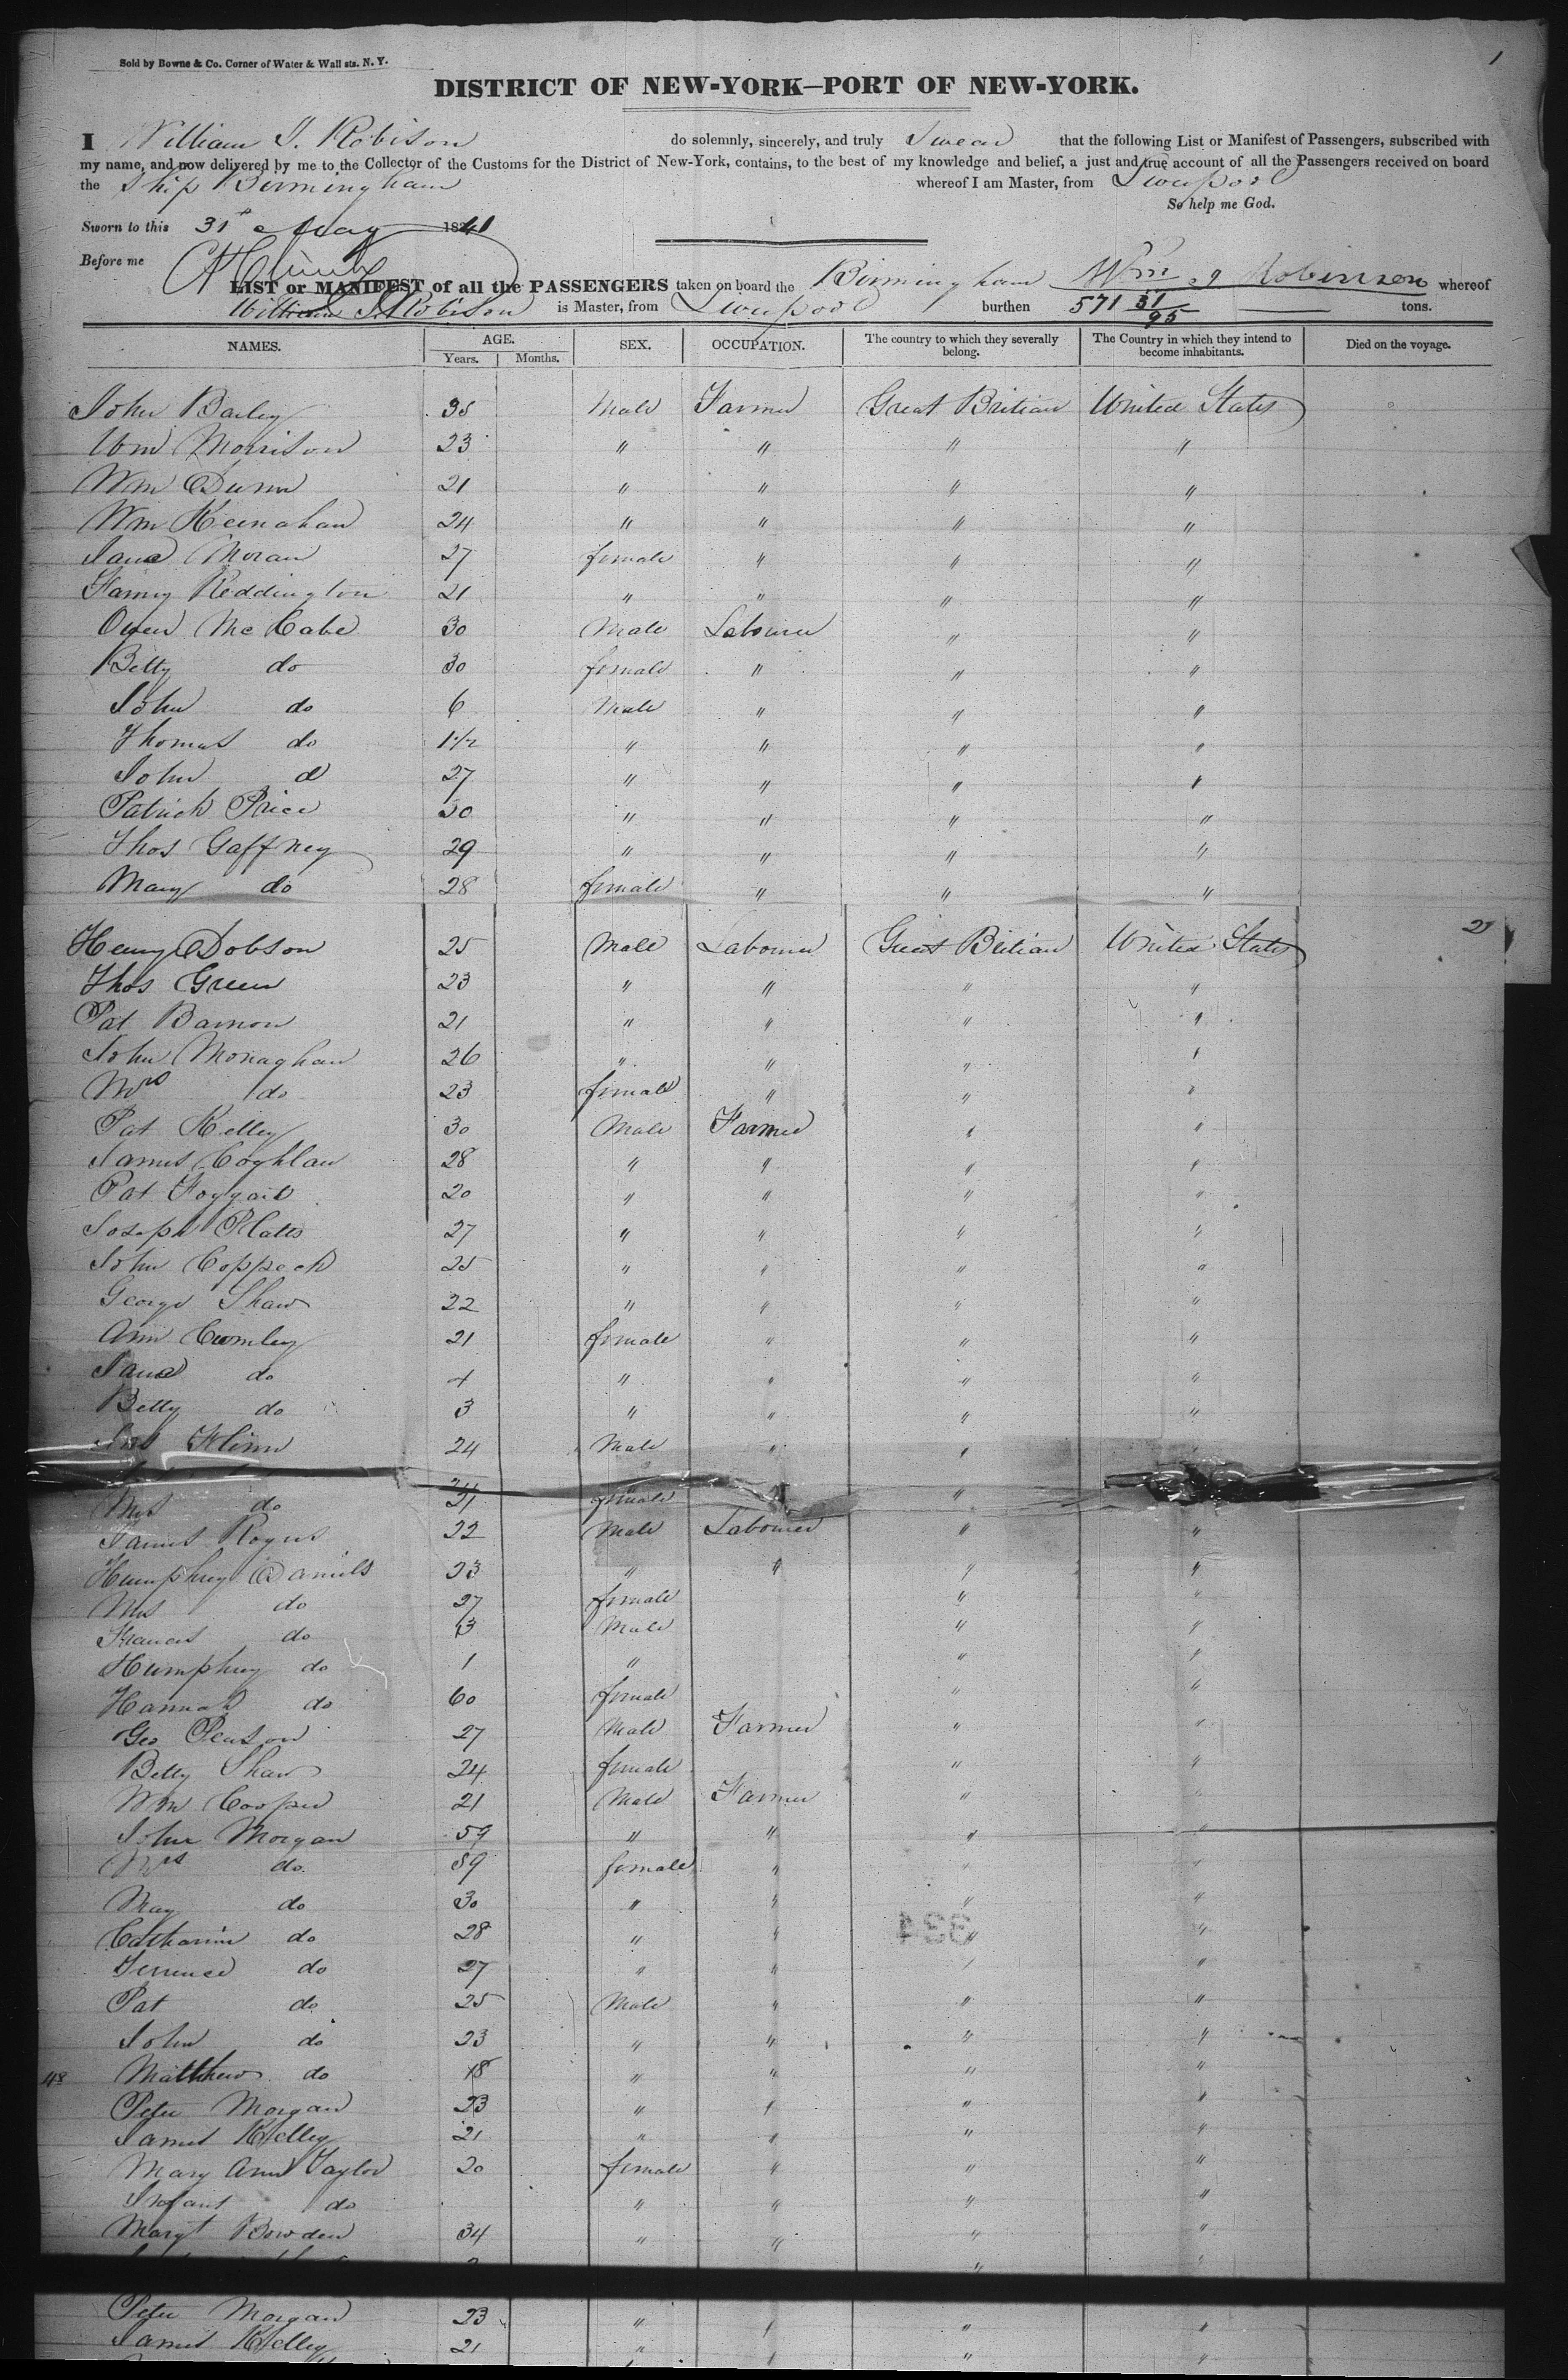 1
Sold by Bowne & Co. Corner of Water & Wall sts. N. Y.
DISTRICT OF NEW-YORK—PORT OF NEW-YORK.
I William J. Robison do solemnly, sincerely, and truly Swear that the following List or Manifest of Passengers, subscribed with
my name, and now delivered by me to the Collector of the Customs for the District of New-York, contains, to the best of my knowledge and belief, a just and true account of all the Passengers received on board
the Ship Birmingham whereof I am Master, from Liverpool
So help me God.
Sworn to this 31st May 1841
Before me
LIST or MANIFEST of all the PASSENGERS taken on board the Birmingham Wm J Robinson whereof
William J. Robison is Master, from Liverpool burthen 571 51/95 tons.
NAMES. AGE. SEX. OCCUPATION. The country to which they severally belong. The Country in which they intend to become inhabitants. Died on the voyage.
Years. Months.
John Barley 35 Male Farmer Great Britian United States
Wm Morrison 23 " " " "
Wm Dunn 21 " " " "
Wm Keenahan 24 " " " "
Jane Moran 27 female " " "
Fanny Reddington 21 " " " "
Owen McCabe 30 Male Labourer " "
Betty do 30 female " " "
John do 6 Male " " "
Thomas do 1 1/2 " " " "
John d 27 " " " "
Patrick Price 30 " " " "
Thos Gaffney 29 " " " "
Mary do 28 female " " "
2
Henry Dobson 25 Male Labourer Great Britian United States
Thos Green 23 " " " "
Pat Barnon 21 " " " "
John Monaghan 26 " " " "
Mrs do 23 female " " "
Pat Kelley 30 Male Farmer " "
James Coghlan 28 " " " "
Pat 20 " " " "
Joseph Platts 27 " " " "
John Coppeck 25 " " " "
George Shaw 22 " " " "
Ann Cumley 21 female " " "
Jane do " " " "
Betty do 3 " " " "
Flinn 24 Male " " "
Mrs do 21 female "
James Rogers 22 Male Labourer " "
Humphrey Daniels 23 " " " "
Mrs do 27 female " "
Francis do 3 Male " "
Humphrey do 1 " " "
Hannah do 60 female " "
Geo Pearson 27 Male Farmer " "
Betty Shaw 24 female " "
Wm Cooper 21 Male Farmer " "
John Morgan 59 " " " "
Mrs do 59 female " " "
May do 30 " " " "
Catharine do 28 " " " "
Terrence do 27 " " " "
Pat do 25 Male " " "
John do 23 " " " "
48 Matthew do 18 " " " "
Peter Morgan 23 " " " "
James Kelley 21 " " " "
Mary Ann Taylor 20 female " " "
Infant do " " " "
Margt Bowden 34 " " " "
Peter Morgan 23 " " " "
James Kelley 21 " " " "